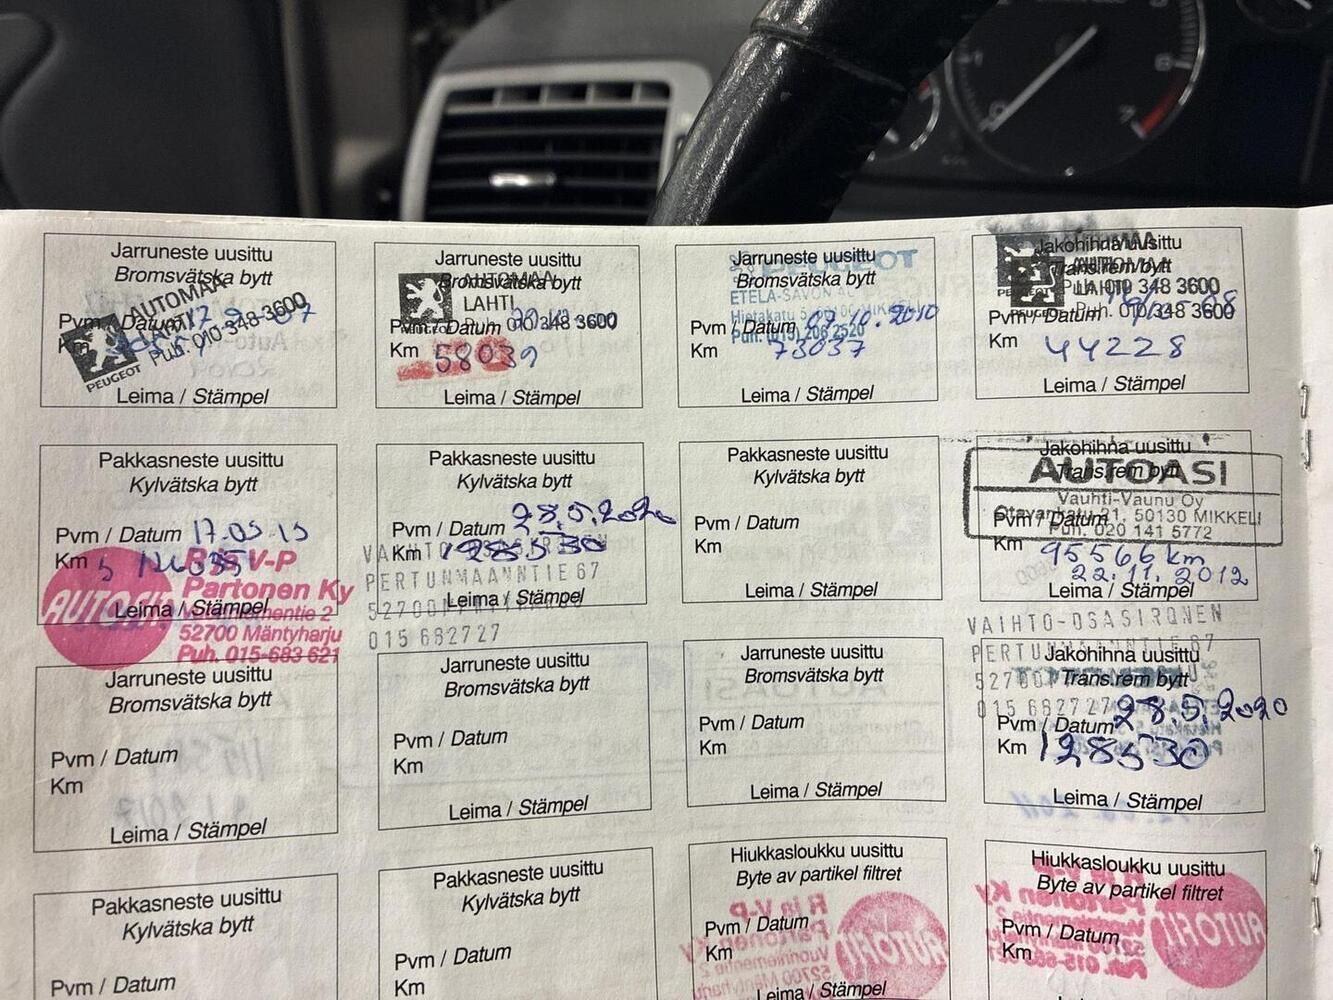 Jarruneste uusittu
Bromsvätska bytt
AUTOMAA
LAHTI
Puh. 010-348 3600
PEUGEOT
Pvm / Datum
Km
Leima / Stämpel
Jarruneste uusittu
Bromsvätska bytt
AUTOMAA
LAHTI
010 348 3600
Pvm / Datum
Km 58039
Leima / Stämpel
Jarruneste uusittu
Bromsvätska bytt
PEUGEOT
ETELÄ-SAVON AC
Pvm / Datum 07.10.2010
Puh. (015) 206 2520
Km 73037
Leima / Stämpel
Jakohihna uusittu
Trans.rem bytt
LAHTI
Puh. 010 348 3600
Pvm / Datum
Km 44228
Leima / Stämpel
Pakkasneste uusittu
Kylvätska bytt
Pvm / Datum 17.03.15
Km
R ja V-P
Partonen Ky
AUTOFIT
Leima / Stämpel
52700 Mäntyharju
Puh. 015-683 621
Pakkasneste uusittu
Kylvätska bytt
Pvm / Datum 28.5.2020
Km 128530
PERTUNMAANTIE 67
Leima / Stämpel
015 682727
Pakkasneste uusittu
Kylvätska bytt
Pvm / Datum
Km
Leima / Stämpel
Jakohihna uusittu
Trans.rem bytt
AUTOASI
Vauhti-Vaunu Oy
Otavankatu 21, 50130 MIKKELI
Pvm / Datum
Puh. 020 141 5772
Km 95566 km
22.11.2012
Leima / Stämpel
Jarruneste uusittu
Bromsvätska bytt
Pvm / Datum
Km
Leima / Stämpel
Jarruneste uusittu
Bromsvätska bytt
Pvm / Datum
Km
Leima / Stämpel
Jarruneste uusittu
Bromsvätska bytt
Pvm / Datum
Km
Leima / Stämpel
VAIHTO-OSASIRONEN
Jakohihna uusittu
Trans.rem bytt
015 682727
Pvm / Datum 28.5.2020
Km 128530
Leima / Stämpel
Pakkasneste uusittu
Kylvätska bytt
Pvm / Datum
Pakkasneste uusittu
Kylvätska bytt
Pvm / Datum
Km
Hiukkasloukku uusittu
Byte av partikel filtret
Pvm / Datum
Km
Leima / Stämpel
Hiukkasloukku uusittu
Byte av partikel filtret
Pvm / Datum
Km